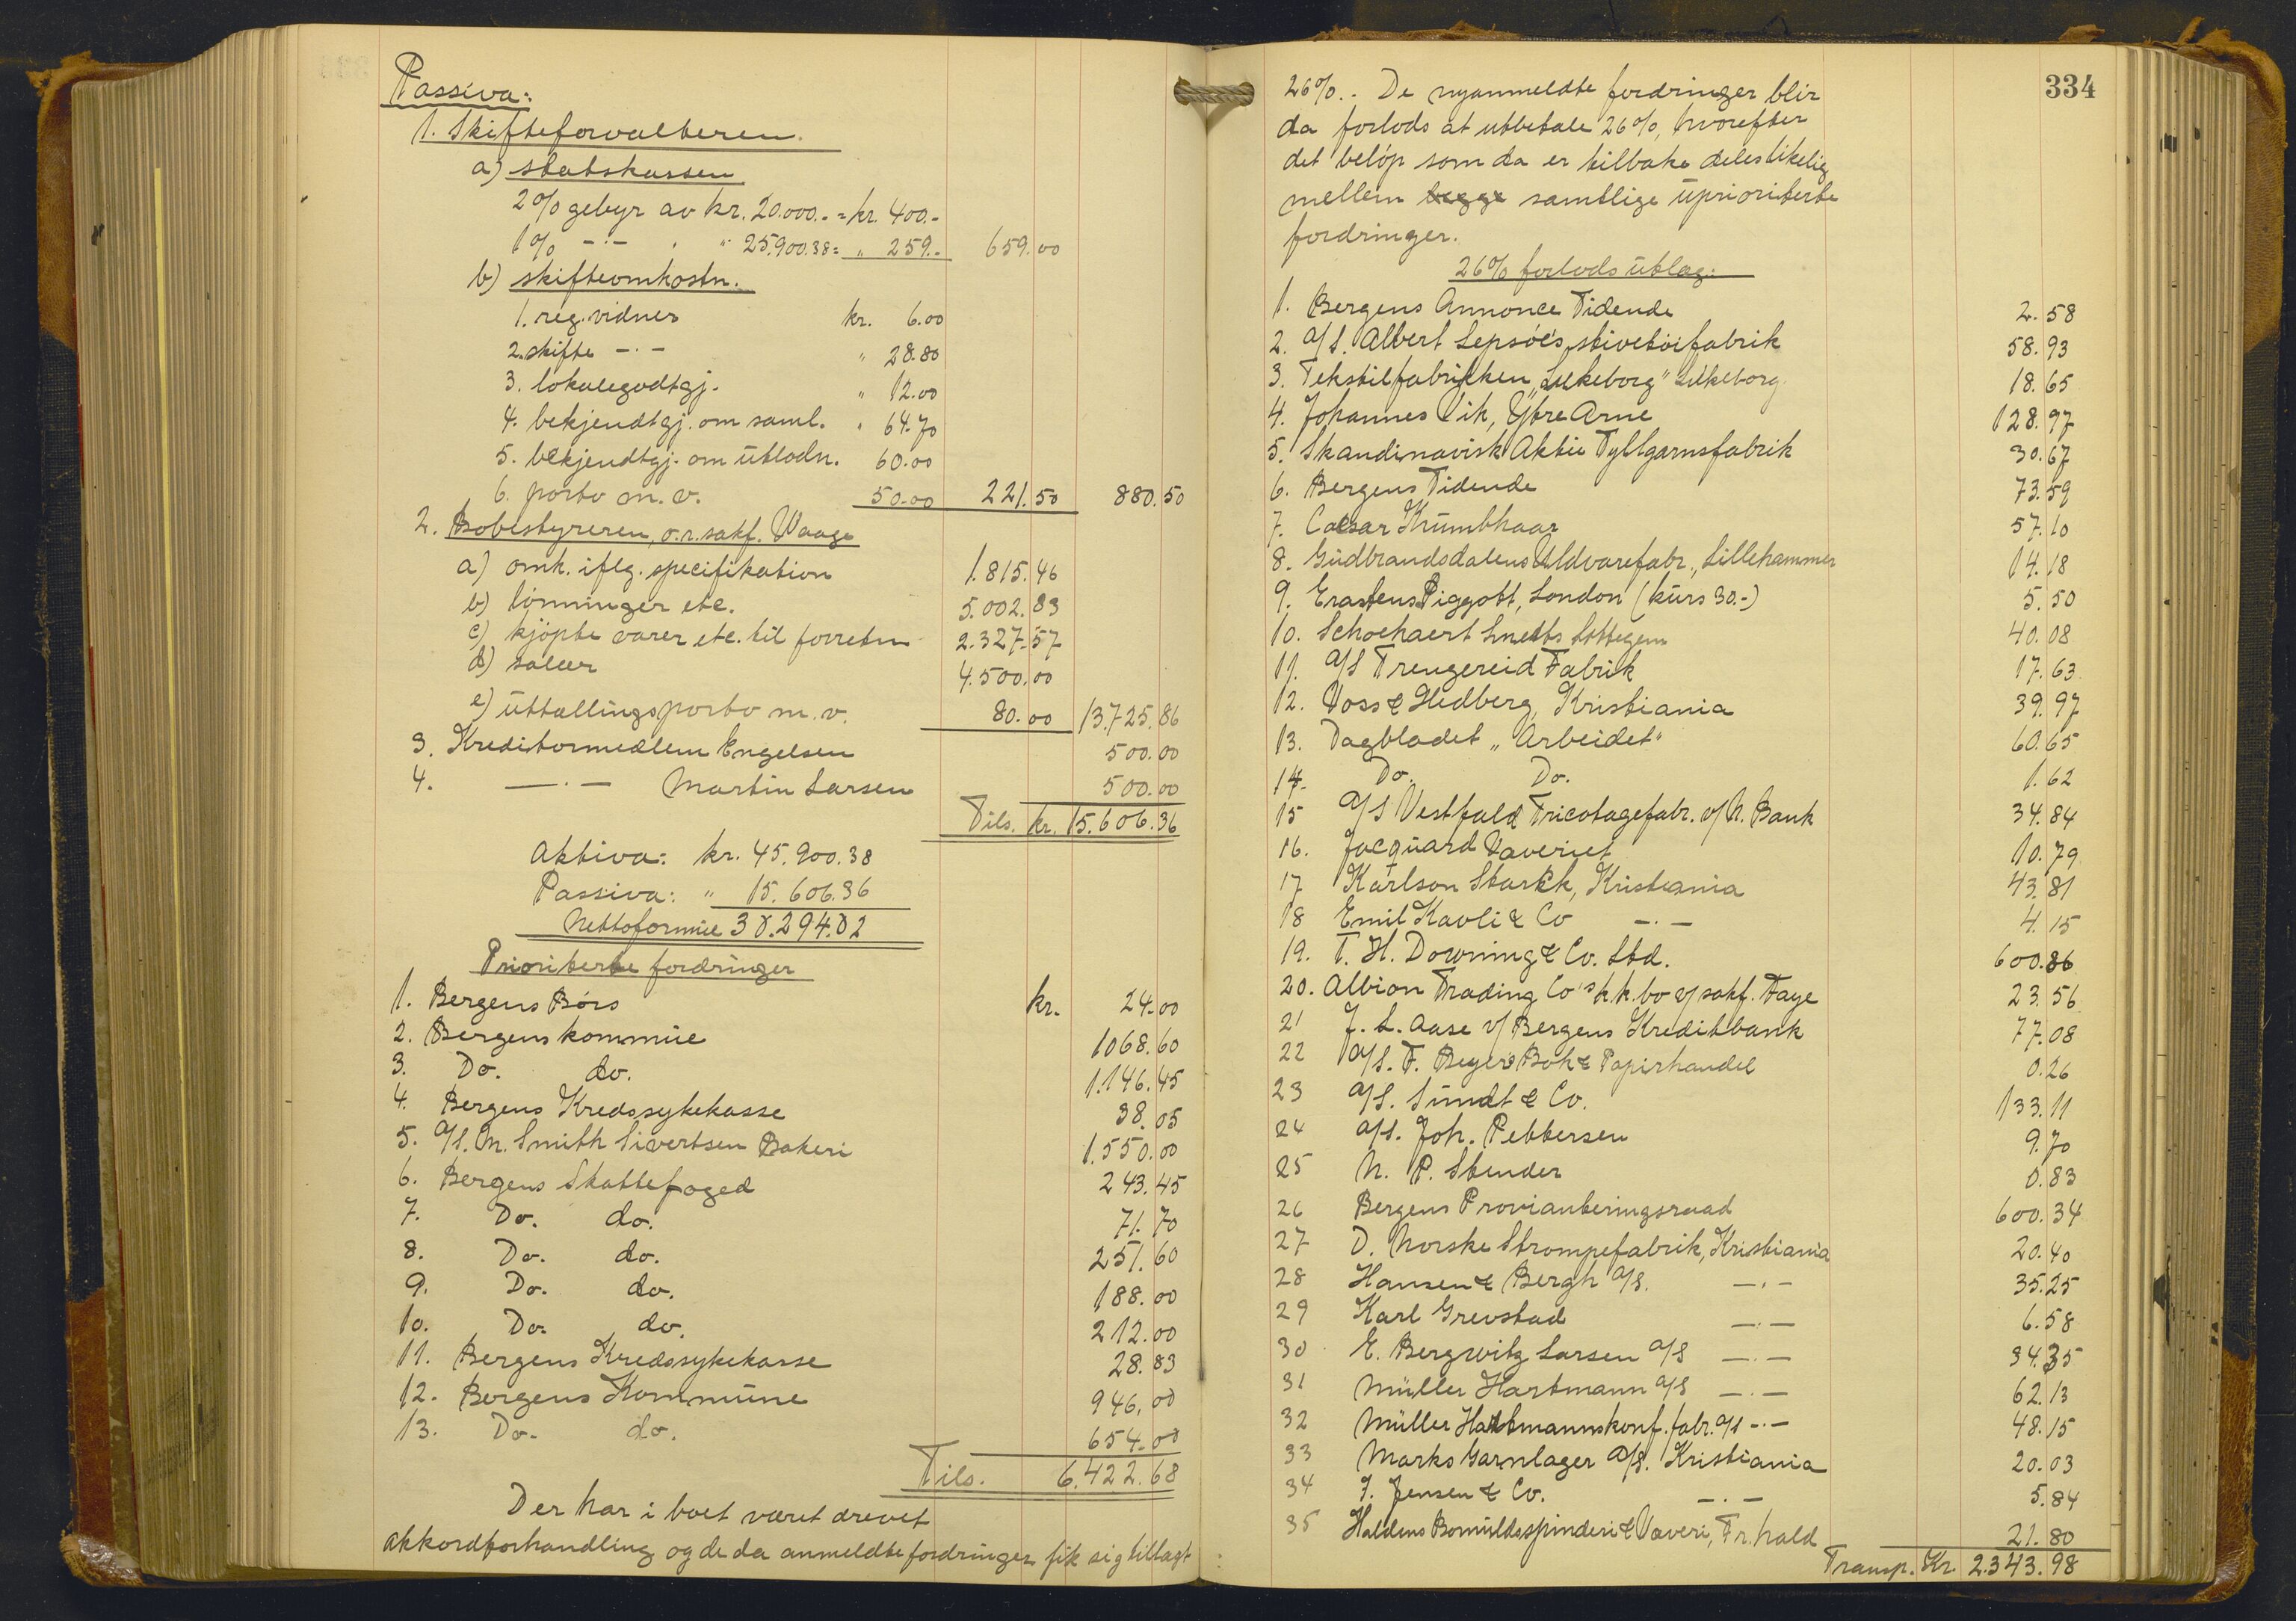 Passiva:
1. Skifteforvalteren.
a) statskassen
2% gebyr av kr. 20.000.- = kr. 400.-
1% -·- " " 25.900.38 = " 259.- 659.00
b) skifteomkostn.
1. reg. vidner kr. 6.00
2. skifte -·- " 28.80
3. lokalegodtgj. " 12.00
4. bekjendtgj. om saml. " 64.70
5. bekjendtgj. om utlodn. 60.00
6. porto m.v. 50.00 221.50 880.50
2. Bobestyreren, o.r.sakf. Waage
a) omk. iflg. specifikation 1.815.46
b) lønninger etc. 5.002.83
c) kjøpte varer etc. til forretn 2.327.57
d) salær 4.500.00
e) uttællingsporto m.v. 80.00 13.725.86
3. Kreditormedlem Engelsen 500.00
4. -·- Martin Larsen 500.00
Tils. kr. 15.606.36
Aktiva: kr. 45.900.38
Passiva: " 15.606.36
Nettoformue 30.294.02
Prioriterte fordringer
1. Bergens Børs kr. 24.00
2. Bergens kommue 1068.60
3. Do. do. 1.146.45
4. Bergens Kredssykekasse 38.05
5. A/S. M. Smith Sivertsen Bakeri 1.550.00
6. Bergens Skattefoged 243.45
7. Do. do. 71.70
8. Do. do. 251.60
9. Do. do. 188.00
10. Do. do. 212.00
11. Bergens Kredssykekasse 28.83
12. Bergens Kommune 946.00
13. Do. do. 654.00
Tils. 6.422.68
Der har i boet været drevet
akkordforhandling og de da anmeldte fordringer fik sig tillagt
334
26%.- De nyanmeldte fordringer blir
da forlods at utbetale 26%, hvorefter
det beløp som da er tilbake deles likelig
mellem begge samtlige uprioriterte
fordringer.
26% forlods utlæg:
1. Bergens Annonce Tidende 2.58
2. A/S. Albert Lepsøe's stivetøifabrik 58.93
3. Tekstilfabrikken "Silkeborg" Silkeborg. 18.65
4. Johannes Vik, Ytre Arne 128.97
5. Skandinavisk Aktie Tyllgarnsfabrik 30.67
6. Bergens Tidende 73.59
7. Caesar Krumbhaar 57.10
8. Gudbrandsdalens Uldvarefabr., Lillehammer 14.18
9. Erastens Piggott, London (kurs 30.-) 5.50
10. Schoehaert Smetts Sottegem 40.08
11. A/S Trengereid Fabrik 17.63
12. Voss & Hedberg, Kristiania 39.97
13. Dagbladet "Arbeidet" 60.65
14. Do. Do. 1.62
15 A/S Vestfold Tricotagefabr. v/ N. Bank 34.84
16. Jacquard Væveriet 10.79
17 Karlson Starck, Kristiania 43.81
18 Emil Kavli & Co -·- 4.15
19. T. H. Downing & Co. Ltd. 600.86
20. Albion Trading Co's k.k. bo v/ sakf. Faye 23.56
21 J. L. Aase v/ Bergens Kreditbank 77.08
22 A/S. F. Beyers Bok & Papirhandel 0.26
23 A/S. Sundt & Co. 133.11
24 A/S. Joh. Pettersen 9.70
25 N. P. Stender 0.83
26 Bergens Provianteringsraad 600.34
27 D. Norske Strømpefabrik, Kristiania 20.40
28 Hansen & Bergh A/S. -·- 35.25
29 Karl Grevstad -·- 6.58
30 E. Bergwitz Larsen A/S -·- 34.35
31 Müller Hartmann A/S -·- 62.13
32 Müller Hartmannskonf. fabr. A/S -·- 48.15
33 Marks Garnlager A/S. Kristiania 20.03
34 J. Jensen & Co. -·- 5.84
35 Haldens Bomuldsspinderi & Væveri, Fr.hald 21.80
Transp. Kr. 2.343.98